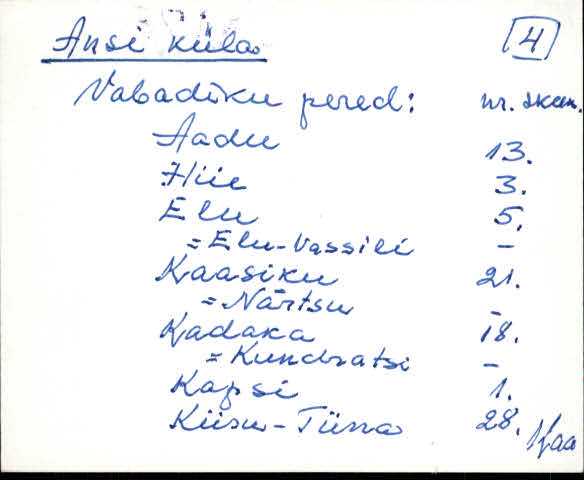 Ansi küla 4
Vabadiku pered: nr. skem.
Aadu 13.
Hiie 3.
Elu 5.
= Elu-Vassili -
Kaasiku 21.
= Närtsu -
Kadaka 18.
= Kundratsi -
Kapsi 1.
Kiisu-Tüüra 28.
Kaa